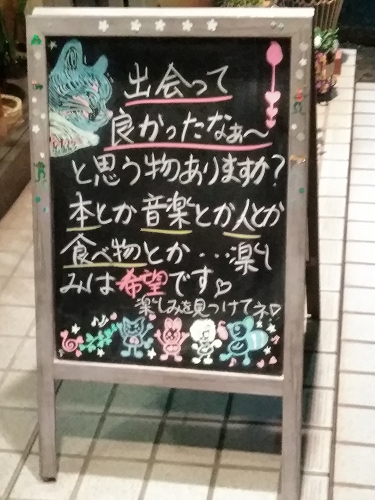 出会って
良かったなぁ〜
と思う物ありますか?
本とか音楽とか人とか
食べ物とか…楽し
みは希望です♡
楽しみを見つけてネ♡